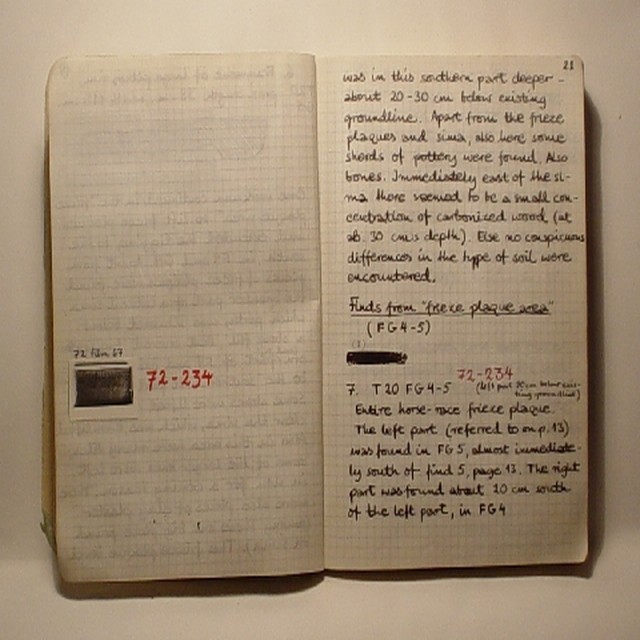 72 film 67
72-234
21
was in this southern part deeper -
about 20-30 cm below existing
groundline. Apart from the frieze
plaques and sima, also here some
sherds of pottery were found. Also
bones. Immediately east of the si-
ma there seemed to be a small con-
centration of carbonized wood (at
ab. 30 cm's depth). Else no conspicuous
differences in the type of soil were
encountered.
Finds from "frieze plaque area"
(FG4-5)
72-234
7. T20 FG4-5 (left part 30 cm below exis-
ting groundline)
Entire horse-race frieze plaque.
The left part (referred to on p. 13)
was found in FG5, almost immediate-
ly south of find 5, page 13. The right
part was found about 20 cm south
of the left part, in FG4